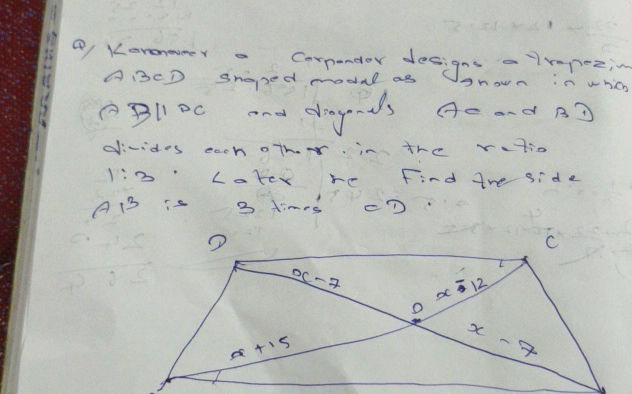 Q/ Karanveer a Carpender designs a Trapezium
ABCD shaped modal as shown in which
AB||DC and diagonals AC and BD
divides each other in the ratio
1:3. Later he Find the side
AB is 3 times CD.
D C
x-7 x-12
O
x+15 x-7